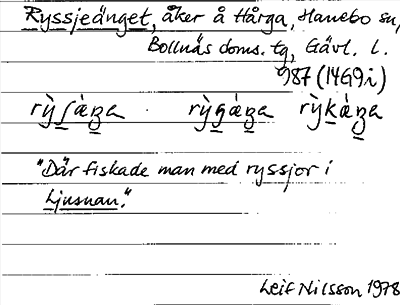 Ryssjeänget, åker å Hårga, Hanebo sn,
Bollnäs doms. tg, Gävl. l.
987 (14G9i)
"Där fiskade man med ryssjor i
Ljusnan."
Leif Nilsson 1978